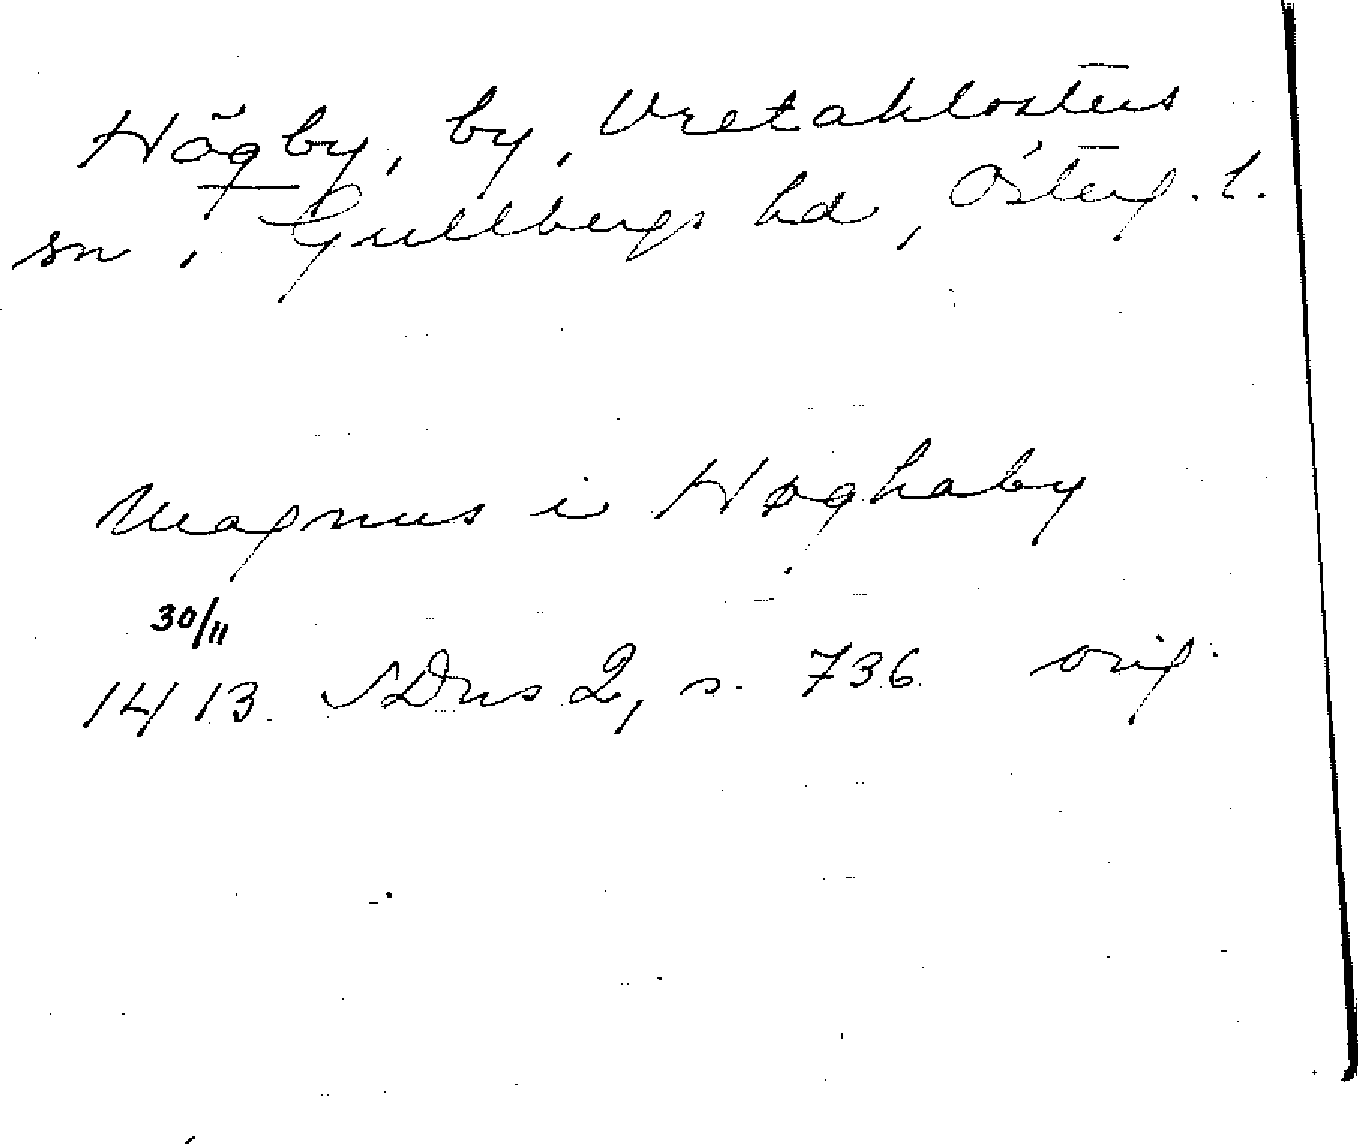 Högby, by, Vretaklosters
sn, Gullbergs hd, Österg. l.
Magnus i Høghaby
30/11
1413. SDns 2, s. 736 orig.